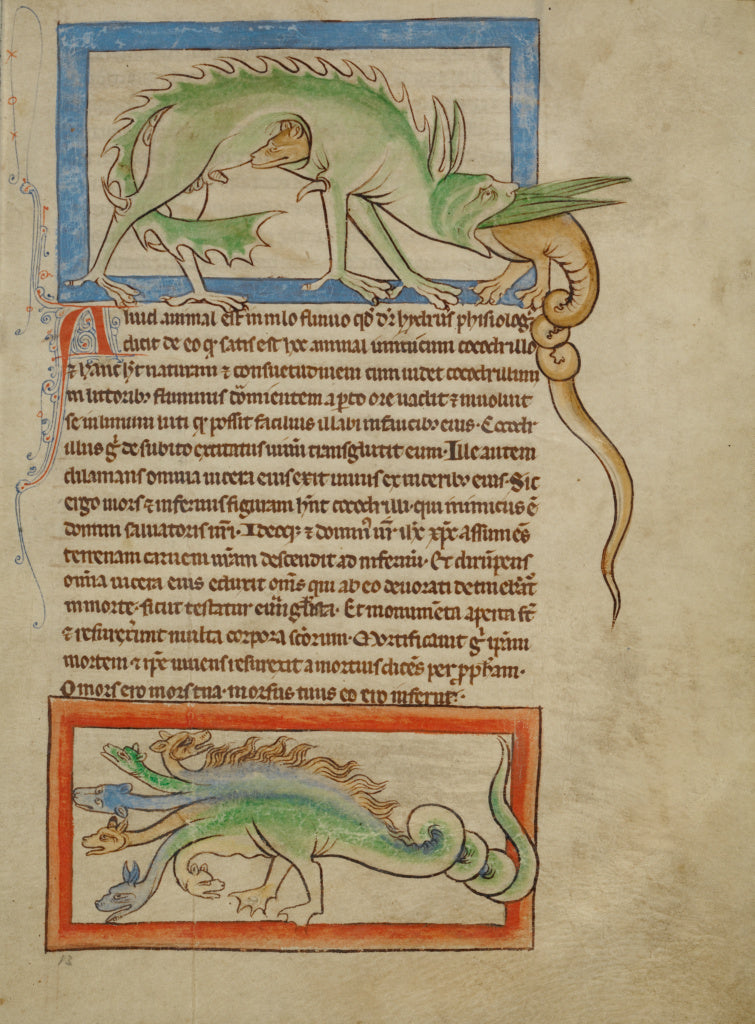 Aliud animal est in nilo fluuio qd̄ dr̄ hydrus phisiolog᷒
dicit de eo qͥ satis est hoc animal inimicum cocodrillo
⁊ hanc hēt naturam ⁊ consuetudinem cum uidet cocodrillum
in littorib᷒ fluminis dormientem aꝑto ore uadit ⁊ inuoluit
se in limum luti qͦ possit facilius illabi in faucib᷒ eius. Cocodr
illus gͥ de subito excitatus uiuum transglutit eum. Ille autem
dilanians omnia uiscera eius exit uiuus ex uiscerib᷒ eius. Sic
ergo mors ⁊ infernus figuram hn̄t cocodrilli. qui inimicus ē
domini saluatoris nr̄i. Ideoq᷒ ⁊ domin᷒ nr̄ ihc xp̄c assumēs
terrenam carnem nr̄am descendit ad infernū. Et dirūpens
om̄ia uiscera eius eduxit om̄s qui ab eo deuorati detinebāt᷒
in morte. sicut testatur euāgl̄ista. Et monumēta aperta st̄
⁊ resurrexerunt multa corpora scōrum. Mortificauit gͥ ipsam
mortem ⁊ ipse uiuens resurexit a mortuis dicēs per ꝓpham.
O mors ero mors tua. morsus tuus ero inferne.
13